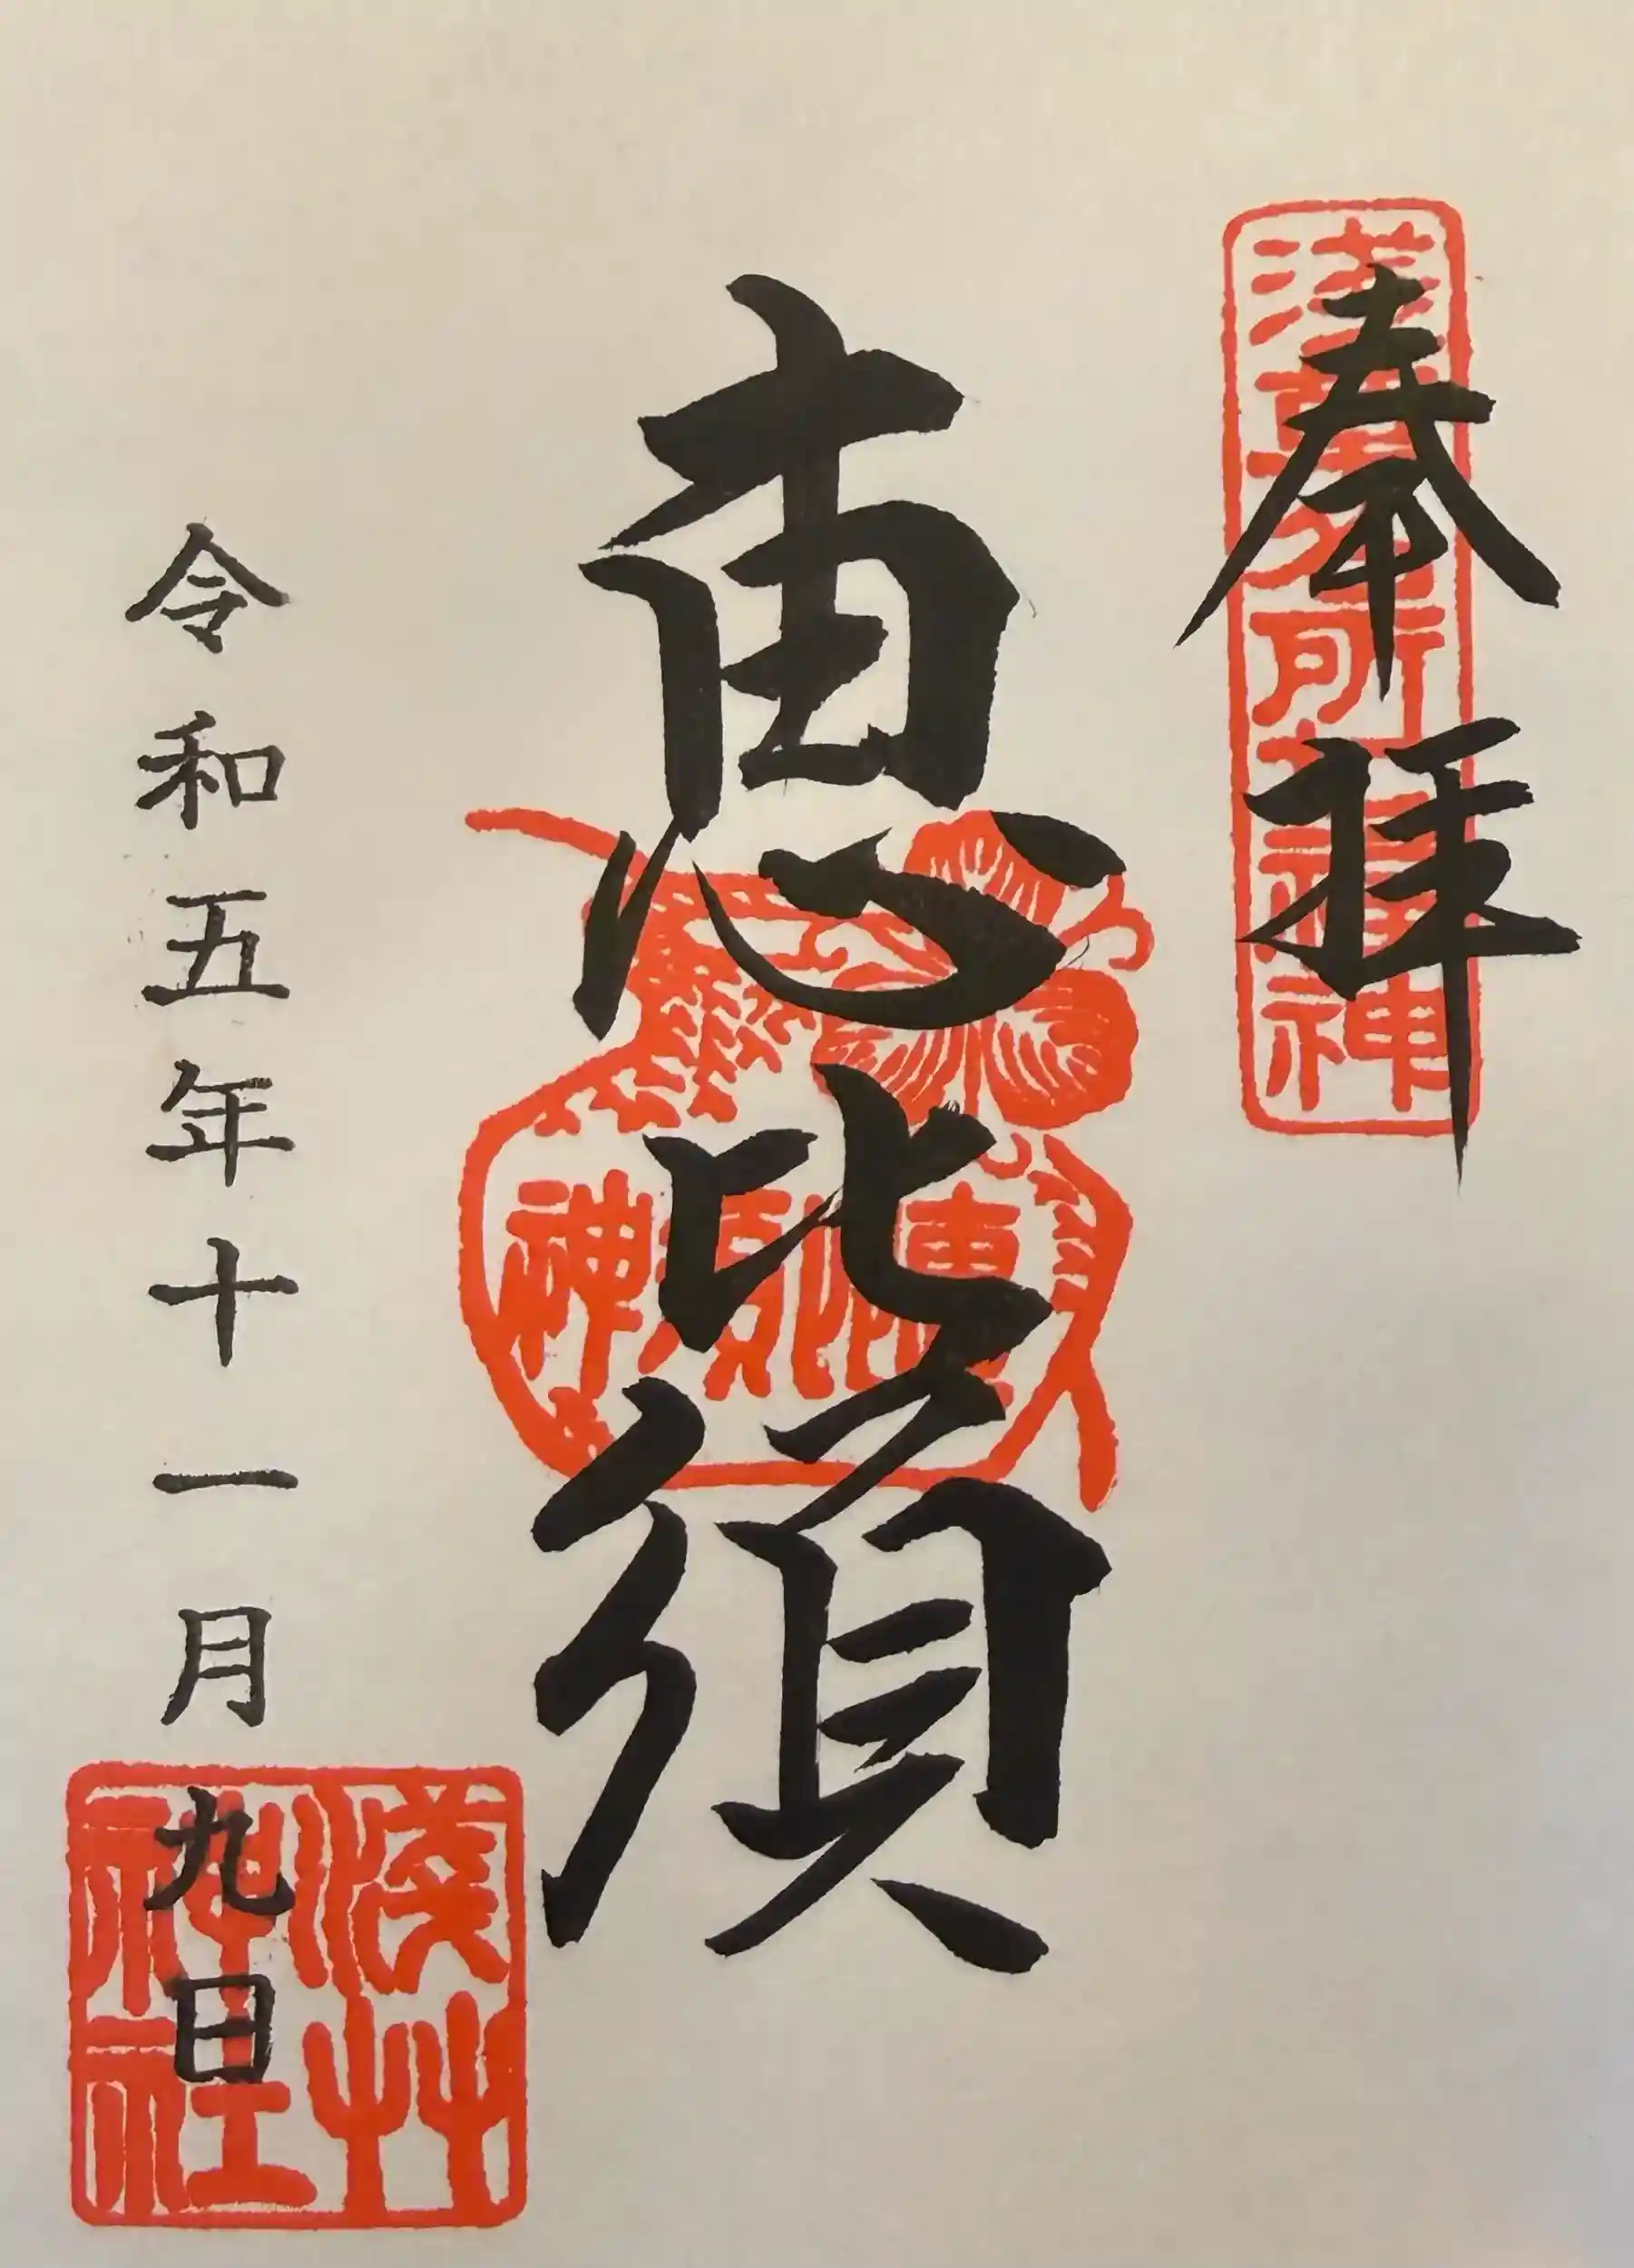 奉拝
浅草名所七福神
恵比須
恵比須神
令和五年十一月九日
浅草
神社